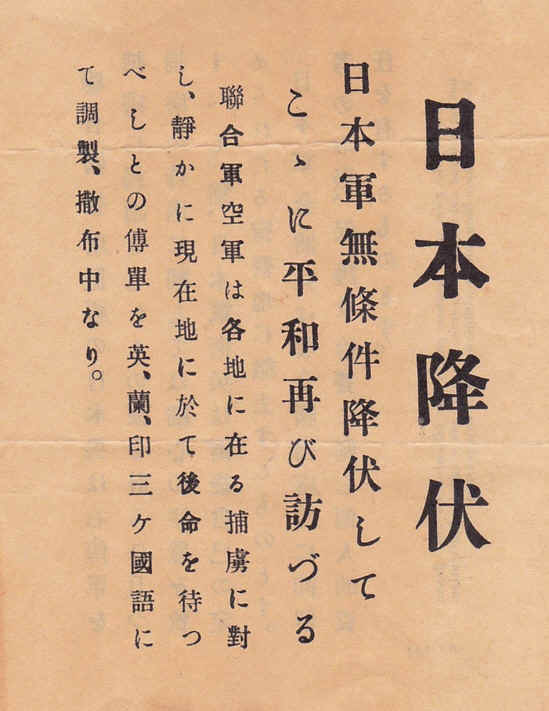 日本降伏
日本軍無條件降伏して
こゝに平和再び訪づる
聯合軍空軍は各地に在る捕虜に對
し、靜かに現在地に於て後命を待つ
べしとの傳單を英、蘭、印三ケ國語に
て調製、撒布中なり。